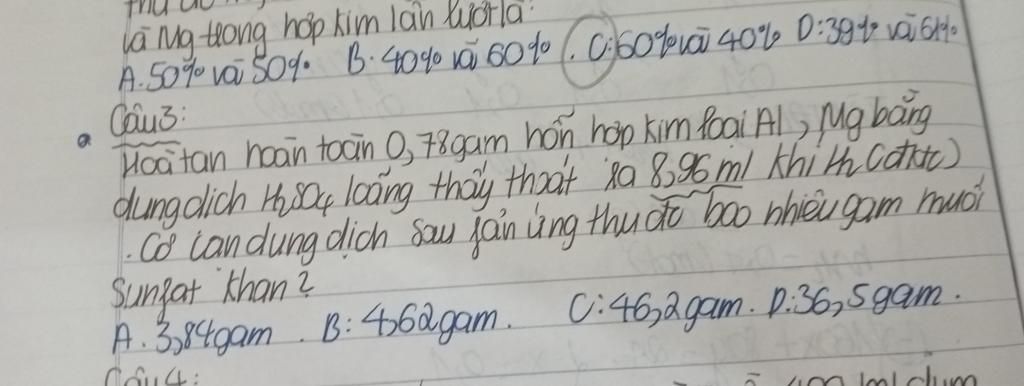 là Mg trong hợp kim lần lượt là:
A. 50% và 50% B. 40% và 60%. C: 60% và 40% D: 39% và 61%
Câu 3:
Hoà tan hoàn toàn 0,78gam hỗn hợp kim loại Al, Mg bằng
dung dịch H2SO4 loãng thấy thoát ra 8,96 ml khí H2 (đktc)
. Cô cạn dung dịch sau phản ứng thu đc bao nhiêu gam muối
Sunfat khan?
A. 3,84gam. B: 4,62gam. C: 46,2gam. D: 36,5gam.
Câu 4: